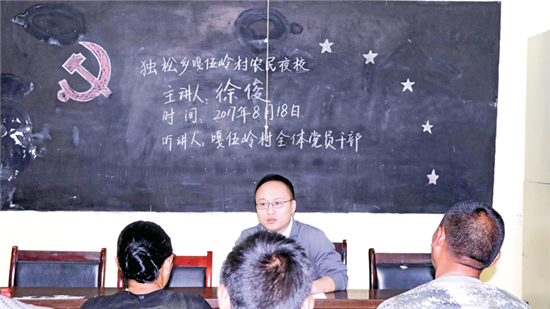 独松乡嘎伍岭村农民夜校
主讲人:徐俊
时间:2017年8月18日
听讲人:嘎伍岭村全体党员干部